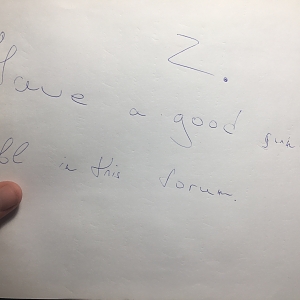 Z.
Have a good
in this forum.